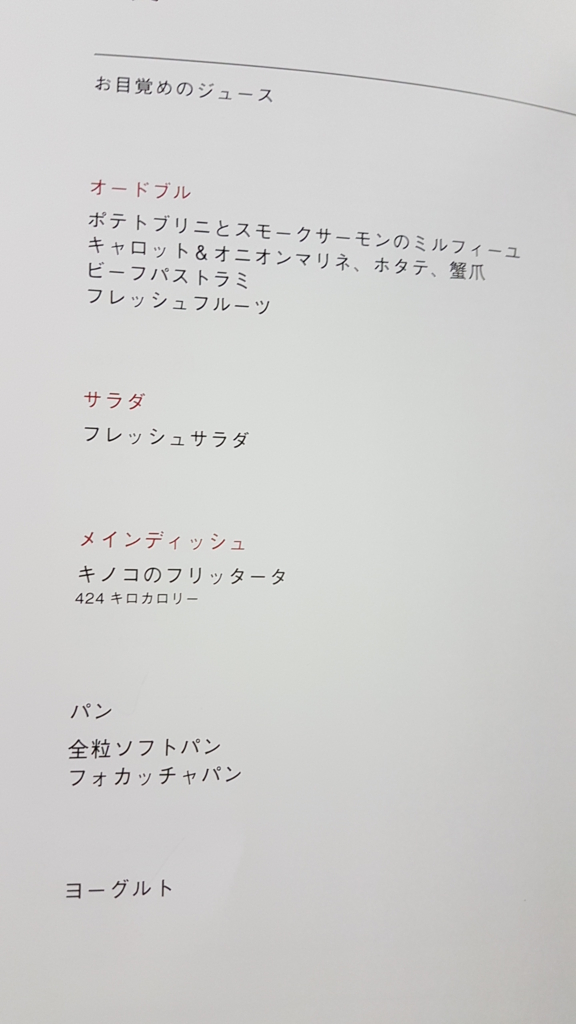 お目覚めのジュース
オードブル
ポテトブリニとスモークサーモンのミルフィーユ
キャロット＆オニオンマリネ、ホタテ、蟹爪
ビーフパストラミ
フレッシュフルーツ
サラダ
フレッシュサラダ
メインディッシュ
キノコのフリッタータ
424 キロカロリー
パン
全粒ソフトパン
フォカッチャパン
ヨーグルト